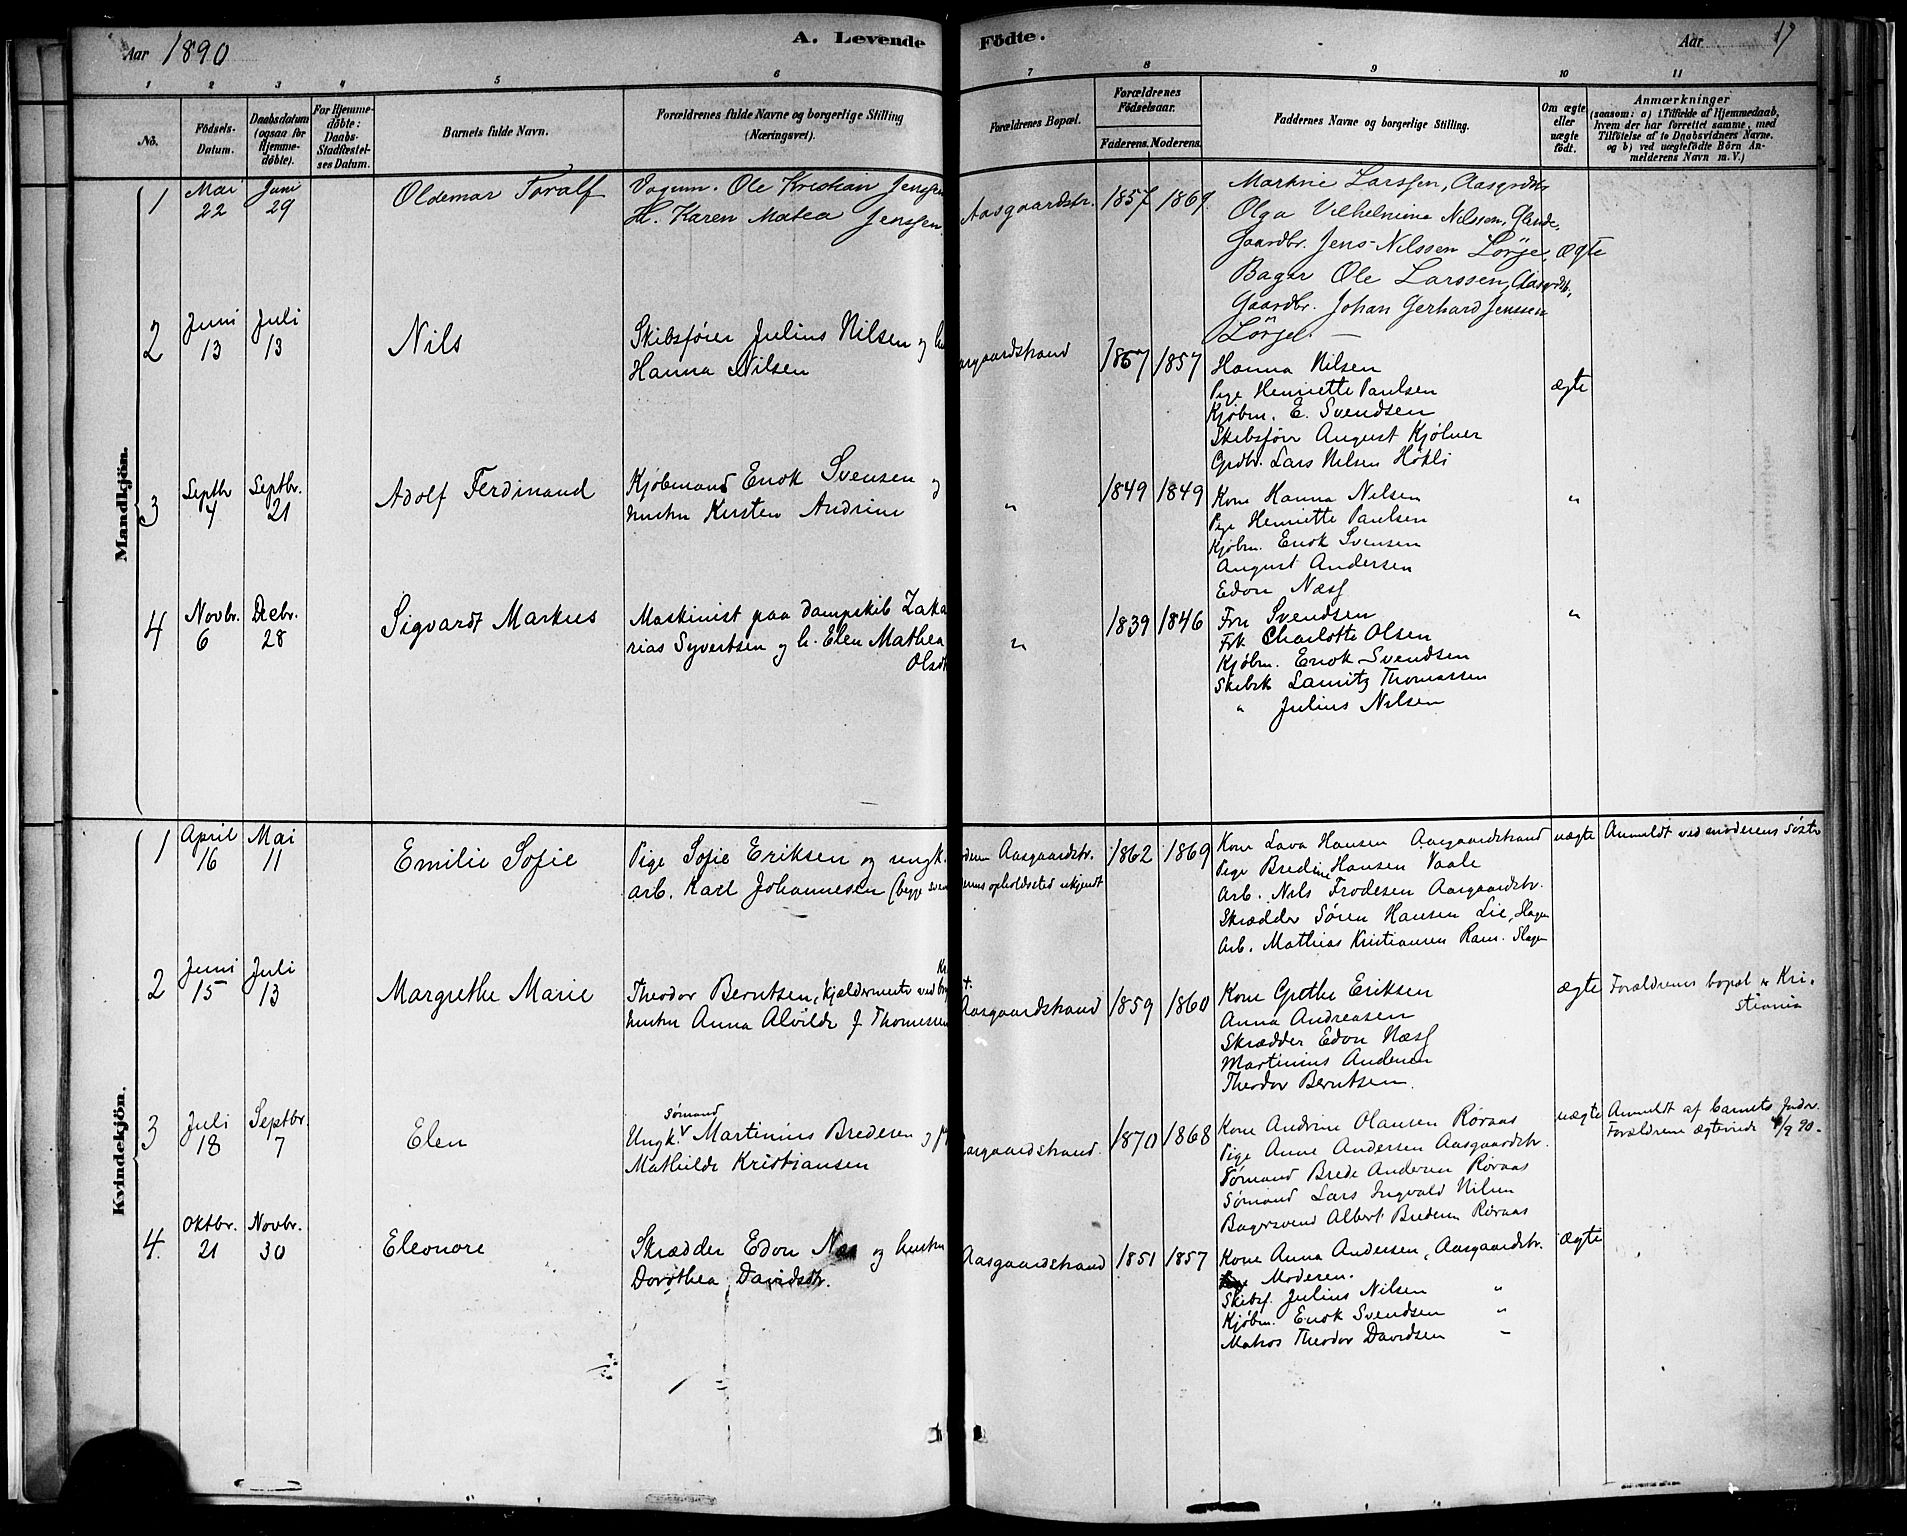 Aar 1890
A. Levende
Födte.
Aar
17
1 2 3 4 5 6 7 8 9 10 11
No.
Födsels-Datum.
Daabsdatum (ogsaa for Hjemme-döbte).
For Hjemme-döbte: Daabs-Stadfæstel-ses Datum.
Barnets fulde Navn.
Forældrenes fulde Navne og borgerlige Stilling (Næringsvei).
Forældrenes Bopæl.
Forældrenes Födselsaar.
Faderens. Moderens.
Faddernes Navne og borgerlige Stilling.
Om ægte eller uægte födt.
Anmærkninger
(saasom: a) i Tilfælde af Hjemmedaab, hvem der har forrettet samme, med Tilföielse af to Daabsvidners Navne. og b) ved uægtefödte Börn An-melderens Navn m. V.)
Mandkjön.
1 Mai 22 Juni 29 Oldemar Toralf
Ole Kristian Jenssen
H. Karen Matea Jenssen
Aasgaardstr. 1857 1869
Martine Larssen, Aasgrdstr
Olga Vilhelmine Nilssen, Glende,
Gaardbr. Jens Nilssen Lørge, ægte
Bager Ole Larssen, Aasgrdst.
Gaardbr. Johan Gerhard Jenssen
Lørge.
2 Juni 13 Juli 13 Nils
Skibsfører Julius Nilsen og
Hanna Nilsen
aasgaardstrand 1857 1857
Hanna Nilsen
Pige Henriette Paulsen
Kjøbm. E. Svendsen
Skibsfører August Kjølner
Grdbr. Lars Nilsen Høkli
ægte
3 Septbr 4 Septbr. 21 Adolf Ferdinand
Kjøbmand Enok Svensen og
hustru Kirsten Andrine
" 1849 1849
Kone Hanna Nilsen
Pige Henriette Paulsen
Kjøbm. Enok Svensen
August Andersen
Edon Næss
"
4 Novbr. 6 Decbr. 28 Sigvardt Markus
Maskinist paa Dampskib Zaka
rias Syvertsen og h. Elen Mathea
Olsdt
" 1839 1846
Fru Svendsen
Frk Charlotte Olsen
Kjøbm. Enok Svendsen
Skibsk Lauritz Thomassen
" Julius Nilsen
"
Kvindekjön.
1 April 16 Mai 11 Emilie Sofie
Pige Sofie Eriksen og ungk.
arb. Karl Johannesen (begge
Aasgaardstr.
opholdssted ukjendt
1862 1869
Kone Lava Hansen Aasgaardstrand
Pige Bredine Hansen Vaale
Arb. Nils Frodesen Aasgaardstr.
Skrædder Søren Hansen Lie, Slagen
Arb. Mathias Kristiansen Ram. Slagen
uægte Anmeldt ved moderens søster
2 Juni 15 Juli 13 Margrethe Marie
Theodor Berntsen, kjældermester ved
hustru Anna Alvilde f. Thomessen
Aasgaardstrand 1859 1860
Kone Grethe Eriksen
Anna Andreasen
Skrædder Edon Næss
Martinius Andersen
Theodor Berntsen.
ægte Forældrenes bopæl er Kri-
stiania
3 Juli 18 Septbr 7 Elen
sømand
Ungk. Martinius Bredesen og
Mathilde Kristiansen
aasgaardstrand 1870 1868
Kone Andrine Olausen Røraas
Pige Anne Andersen Aasgaardstr.
Sømand Brede Andersen Røraas
Sømand Lars Ingvald Nilsen
Bagersvend Albert Bredesen Røraas
uægte Anmeldt af barnets fader.
Forældrene ægteviede /9 90.
4. Oktbr. 21 Novbr. 30 Eleonore
Skrædder Edon Næss og hustru
Dorothea Davidsdtr.
Aasgaardstrand 1851 1857
Kone Anna Andersen, Aasgaardstr.
Moderen.
Skibsf. Julius Nilsen "
Kjøbm. Enok Svendsen "
Matros Theodor Davidsen "
ægte